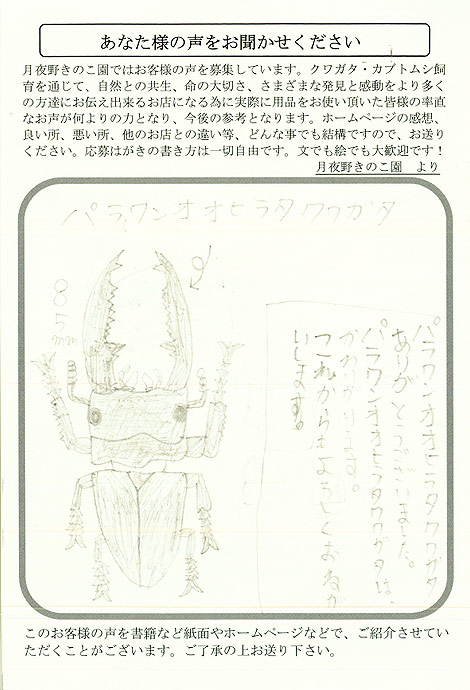 あなた様の声をお聞かせください
月夜野きのこ園ではお客様の声を募集しています。クワガタ・カブトムシ飼
育を通じて、自然との共生、命の大切さ、さまざまな発見と感動をより多く
の方達にお伝え出来るお店になる為に実際に用品をお使い頂いた皆様の率直
なお声が何よりの力となり、今後の参考となります。ホームページの感想、
良い所、悪い所、他のお店との違い等、どんな事でも結構ですので、お送り
ください。応募はがきの書き方は一切自由です。文でも絵でも大歓迎です！
月夜野きのこ園　より
パラワンオオヒラタクワガタ
♂
85mm
パラワンオオヒラタクワガタ
ありがとうございました。
パラワンオオヒラタクワガタは、
これからもよろしくおねが
いします。
このお客様の声を書籍など紙面やホームページなどで、ご紹介させてい
ただくことがございます。ご了承の上お送り下さい。